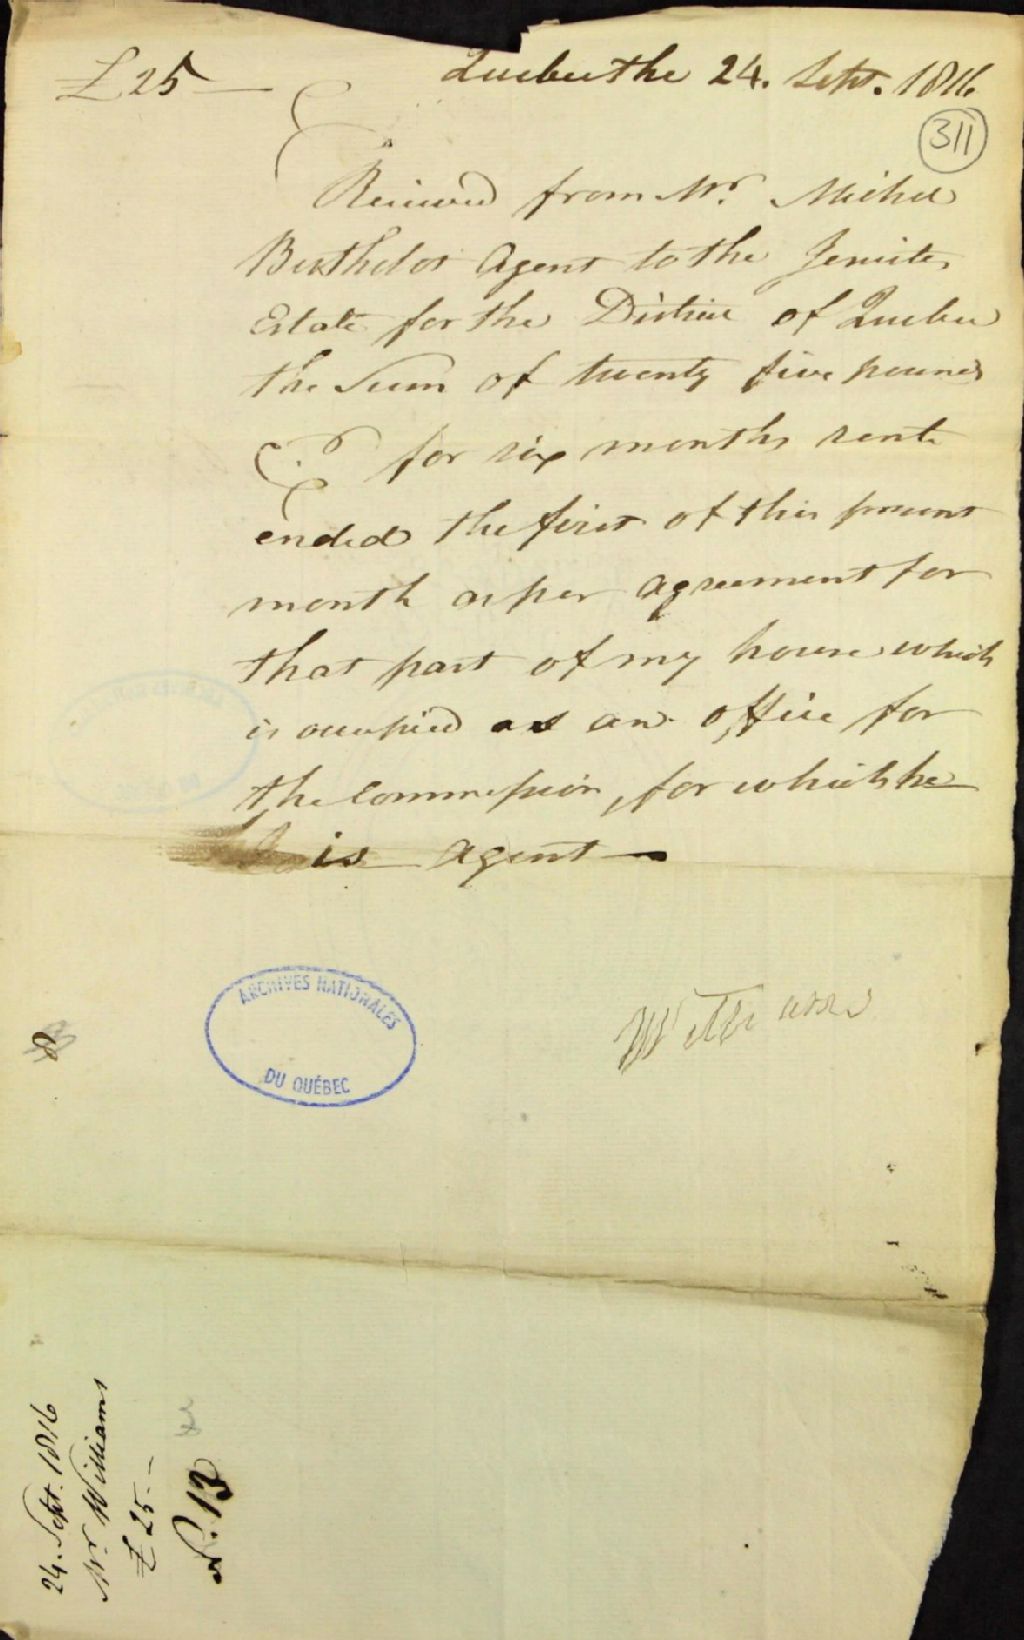 £25 —
Quebec the 24. Sept. 1816
311
Received from Mr. Michel
Berthelot Agent to the Jesuites
Estate for the District of Quebec
the Sum of twenty five pounds
for six months rente
ended the first of this present
month as per agreement for
that part of my house which
is occupied as an office for
the Commission, for which he
is agent —
W
ARCHIVES NATIONALES
DU QUÉBEC
24. Sept. 1816
Mr. Williams
£ 25 —
No. 13